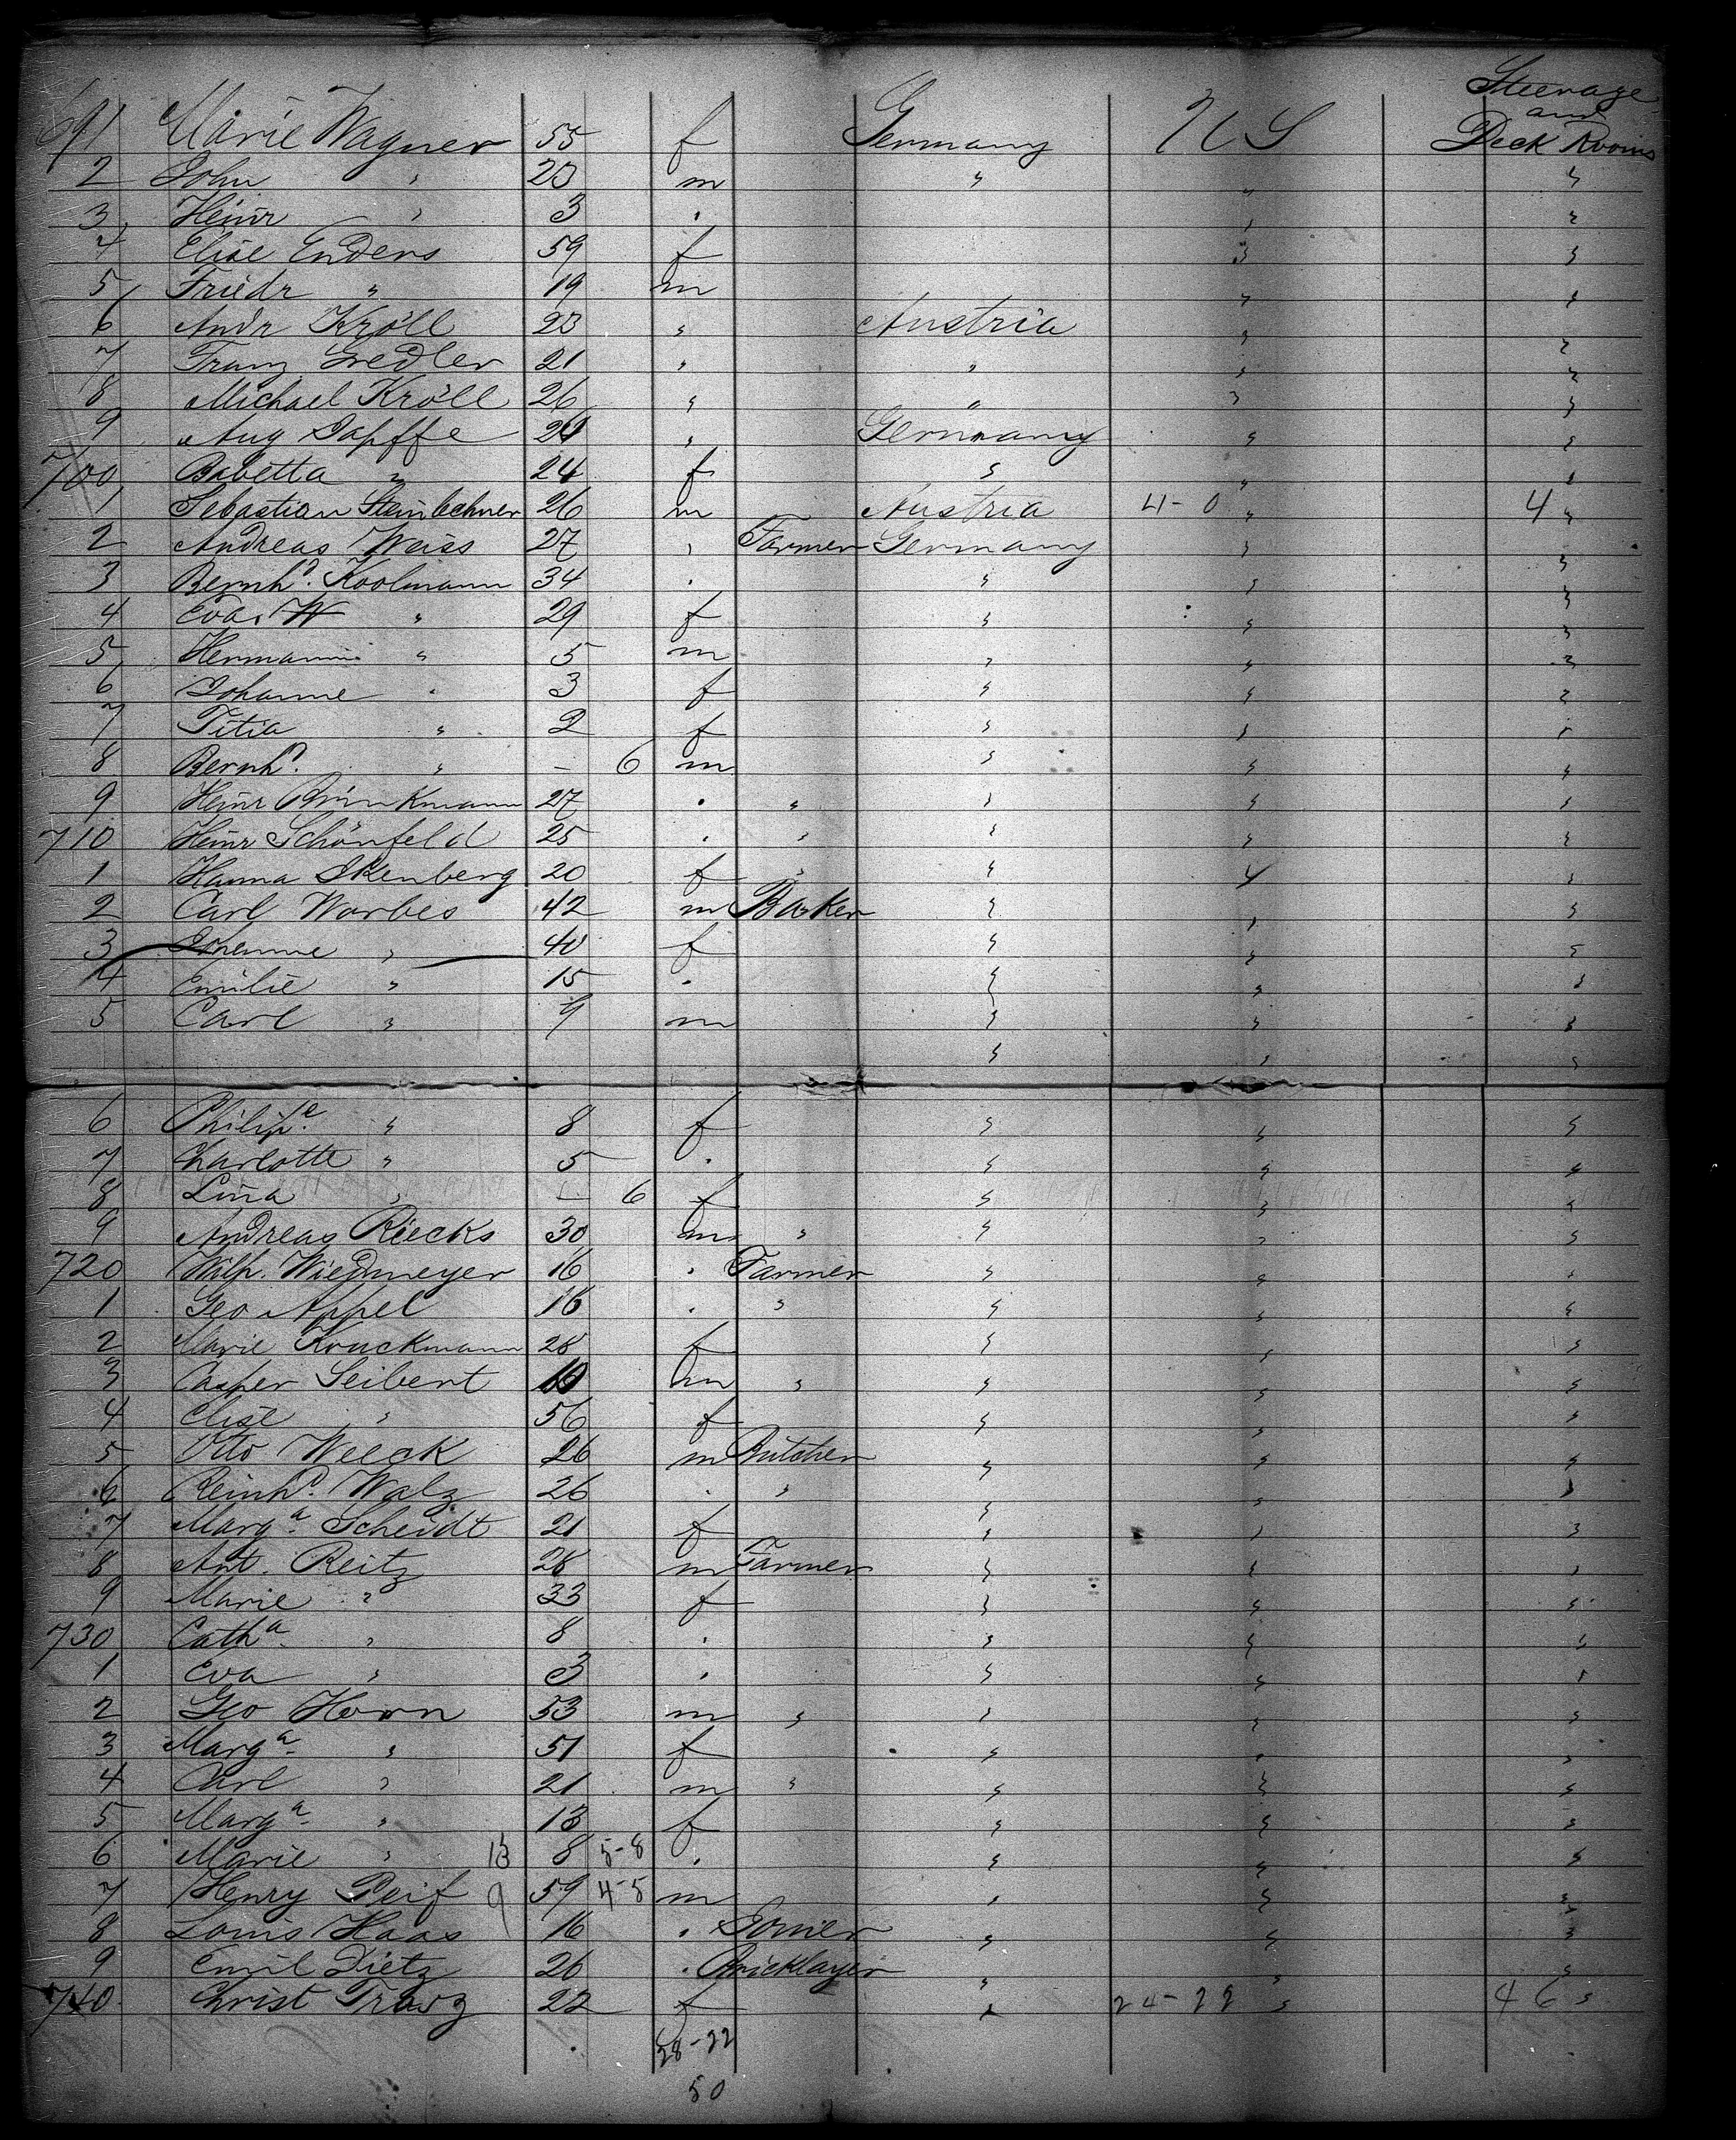 Steerage
and
691 Marie Wagner 55 f Germany U S Deck Rooms
2 John " 20 m " " "
3 Heinr " 3 " " "
4 Elise Enders 59 f " "
5 Friedr " 19 m " "
6 Andr Kröll 23 " Austria " "
7 Franz Gredler 21 " " " "
8 Michael Kröll 26 " " " "
9 Aug Japffe " Germany " "
700 Babetta " 24 f " " "
1 Sebastian 26 m Austria 4-0 " 4 "
2 Andreas Weiss 27 " Farmer Germany " "
3 Bernhd. Koolmann 34 " " " "
4 Eva W " 29 f " " "
5 Hermann " 5 m " " "
6 Johanne " 3 f " " "
7 Titia " 2 f " " "
8 Bernhd. " – 6 m " " "
9 Heinr Brinkmann 27 " " " " "
710 Heinr Schönfeld 25 " " " " "
1 Hanna Ikenberg 20 f " " " "
2 Carl Worbes 42 m Baker " " "
3 Johanne " 40 f " " "
4 Emilie " 15 " " " "
5 Carl " 9 m " " "
" " "
6 Philipe. " 8 f " " "
7 Charlotte " 5 " " " "
8 Lina " – 6 f " " "
9 Andreas Riecks 30 m " " " "
720 Wilh. Wiedmeyer 16 " Farmer " " "
1 Geo Appel 16 " " " " "
2 Marie Kruckmann 28 f " " "
3 Casper Seibert m " " " "
4 Elise " 56 f " " "
5 Otto Weeck 26 m Butcher " " "
6 Reinhd. Walz 26 " " " " "
7 Marga. Scheidt 21 f " " "
8 Ant. Reitz 28 m Farmer " " "
9 Marie " 33 f " " "
730 Catha. " 8 " " " "
1 Eva " 3 " " " "
2 Geo Horn 53 m " " " "
3 Marga. " 51 f " " "
4 Carl " 21 m " " " "
5 Marga. " 13 f " " "
6 Marie " 13 8 5-8 " " " "
7 Henry Peif 9 59 4-5 m " " "
8 Louis Haas 16 " Joiner " " "
9 Emil Dietz 26 " Bricklayer " " "
740 Christ 22 f " 24-22 " 46 "
28-22
50